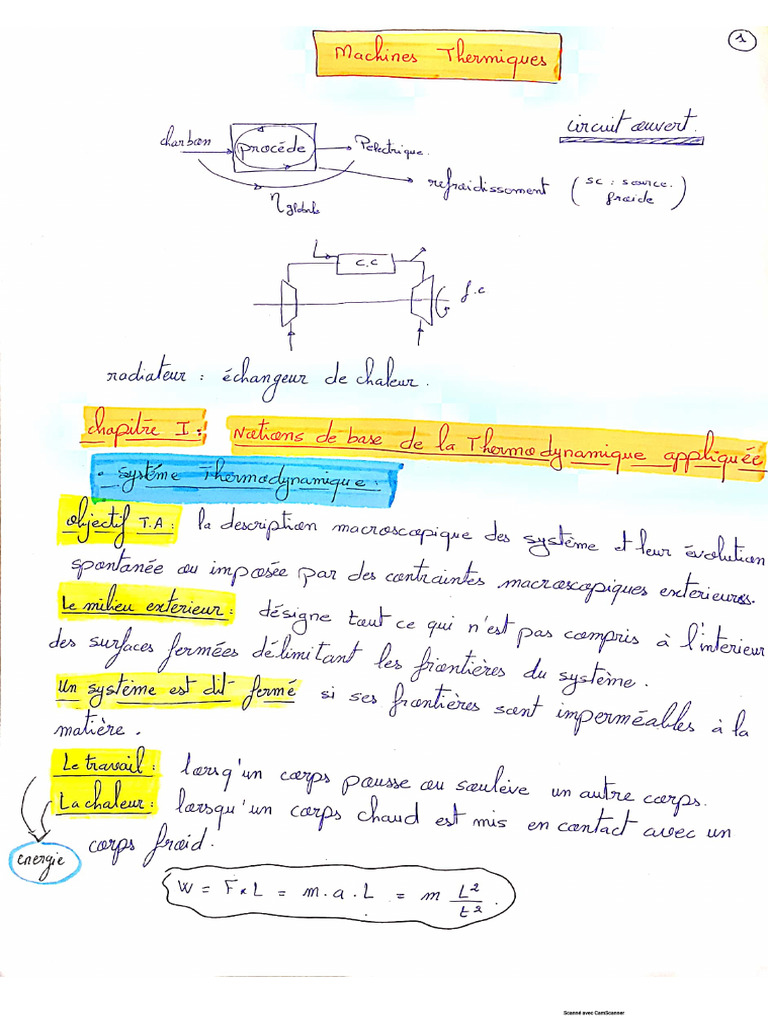 1
Machines Thermiques
circuit ouvert.
charbon procéde Pelectrique.
refroidissement (sc : source froide)
η globale
c.c
f.c
radiateur : échangeur de chaleur.
chapitre I : Notions de base de la Thermodynamique appliquée
• Systéme Thermodynamique.
Objectif T.A : la description macroscopique des système et leur évolution
spontanée ou imposée par des contraintes macroscopiques exterieures.
Le milieu exterieur : désigne tout ce qui n'est pas compris à l'interieur
des surfaces fermées délimitant les frontières du système.
Un système est dit fermé si ses frontières sont imperméables à la
matière.
Le travail : lorsqu'un corps pousse ou soulève un autre corps.
La chaleur : lorsqu'un corps chaud est mis en contact avec un
corps froid.
energie
W = F x L = m . a . L = m L²/t² .
Scanné avec CamScanner